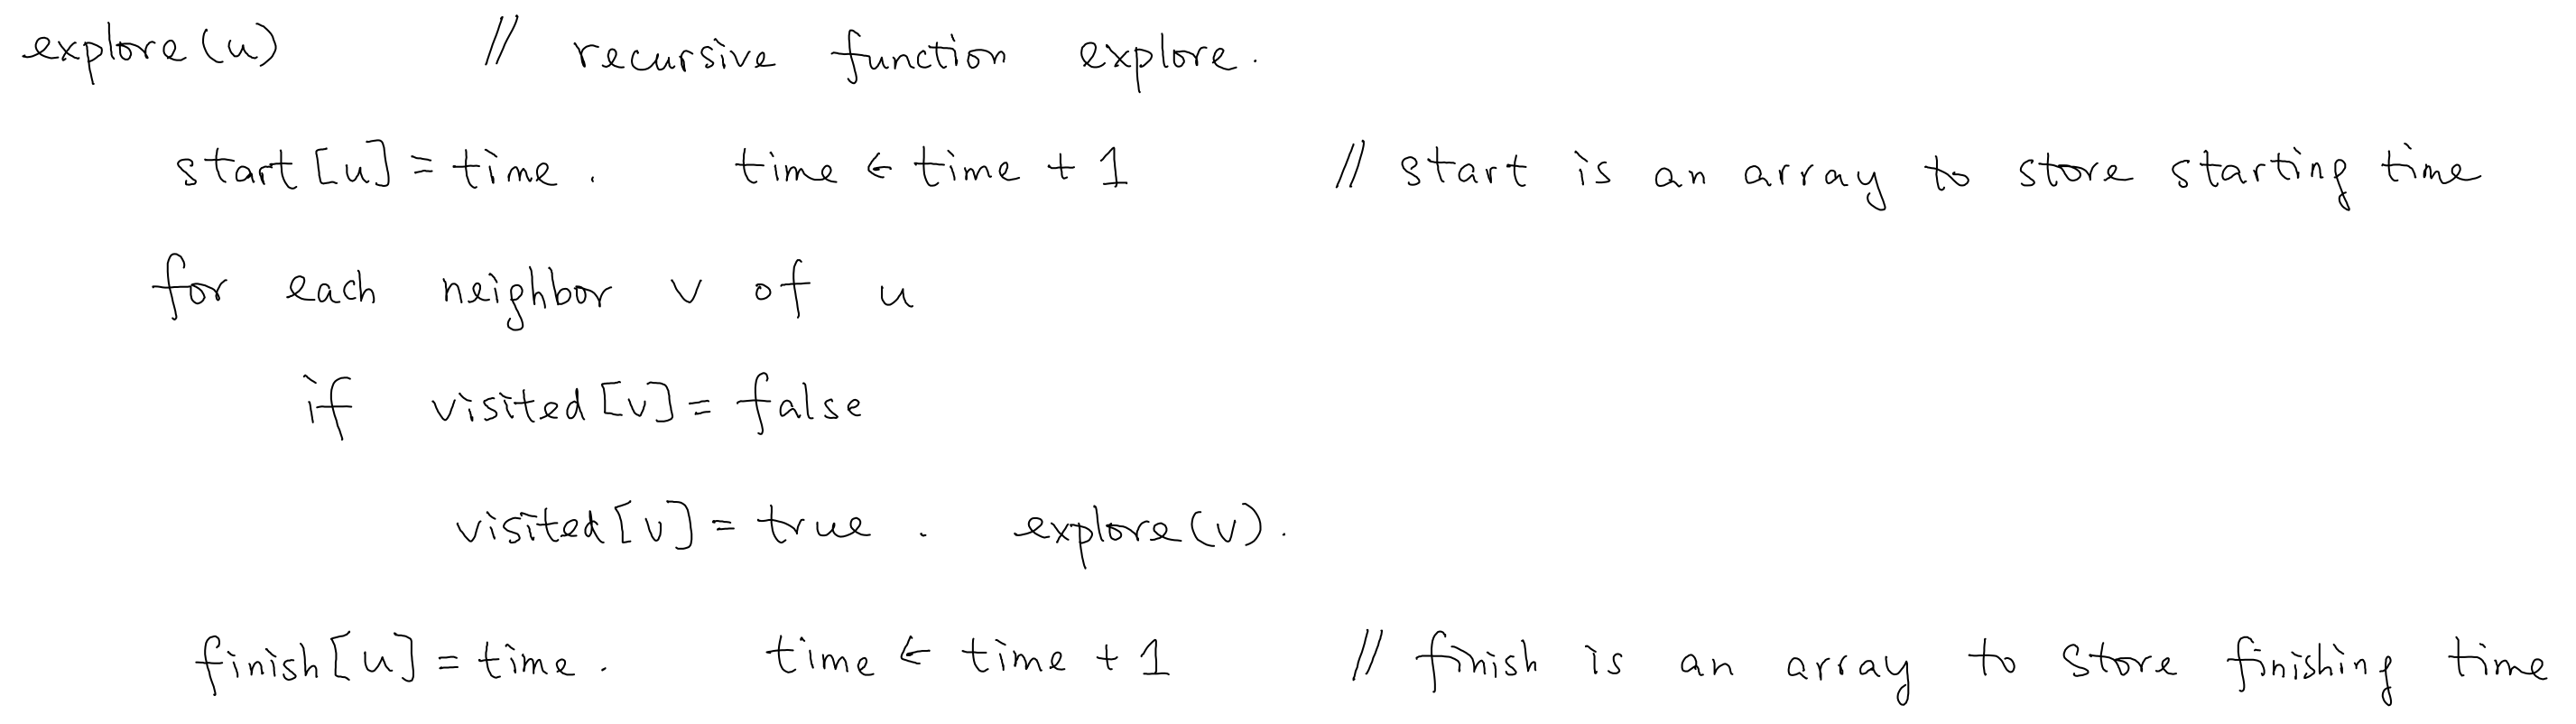 explore(u) // recursive function explore.
start[u] = time. time ← time + 1 // start is an array to store starting time
for each neighbor v of u
if visited[v] = false
visited[v] = true. explore(v).
finish[u] = time. time ← time + 1 // finish is an array to store finishing time